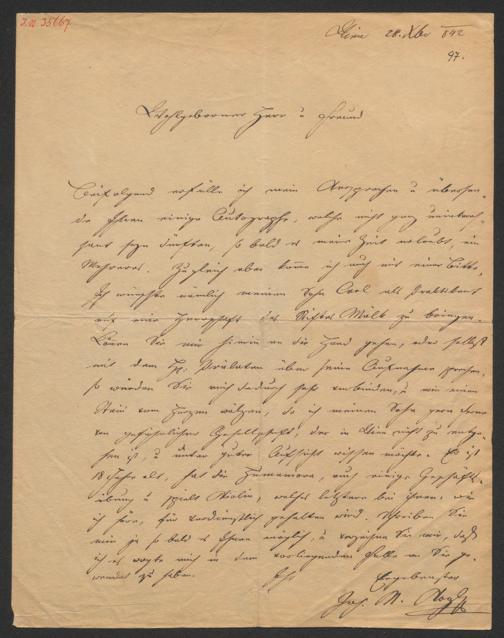 I.N. 35667
Wien 28. Xber 842
97.
Wohlgeborner Herr u Freund
Beifolgend erfülle ich mein Versprechen u übersen-
de Ihnen einige Autographe, welche nicht ganz uninteres-
sant seyn dürften, so bald es meine Zeit erlaubt, ein
Mehreres. Zugleich aber komme ich auch mit einer Bitte,
Ich wünschte nämlich meinen Sohn Carl als Praktikant
auf eine Herrschaft des Stiftes Mölk zu bringen.
Können Sie mir hierin an die Hand gehen, oder selbst
mit dem H. Prälaten über seine Aufnahme sprechen,
so würden Sie mich dadurch sehr verbinden, u mir einen
Stein vom Herzen wälzen, da ich meinen Sohn gern ferne
von gefährlicher Gesellschaft, der in Wien nicht zu entge-
hen ist, u unter guter Aufsicht wissen möchte. Er ist
18 Jahre alt, hat die Humaniora, auch einige Geschäfts-
übung u spielt Violin, welches letztere bei Ihnen, wie
ich höre, für verdienstlich gehalten wird. Schreiben Sie
mir ja so bald es Ihnen möglich, u verzeihen Sie mir, daß
ich es wagte mich in dem vorliegenden Falle an Sie ge-
wendet zu haben.
Ihr Ergebenster
Joh. N. Vogl